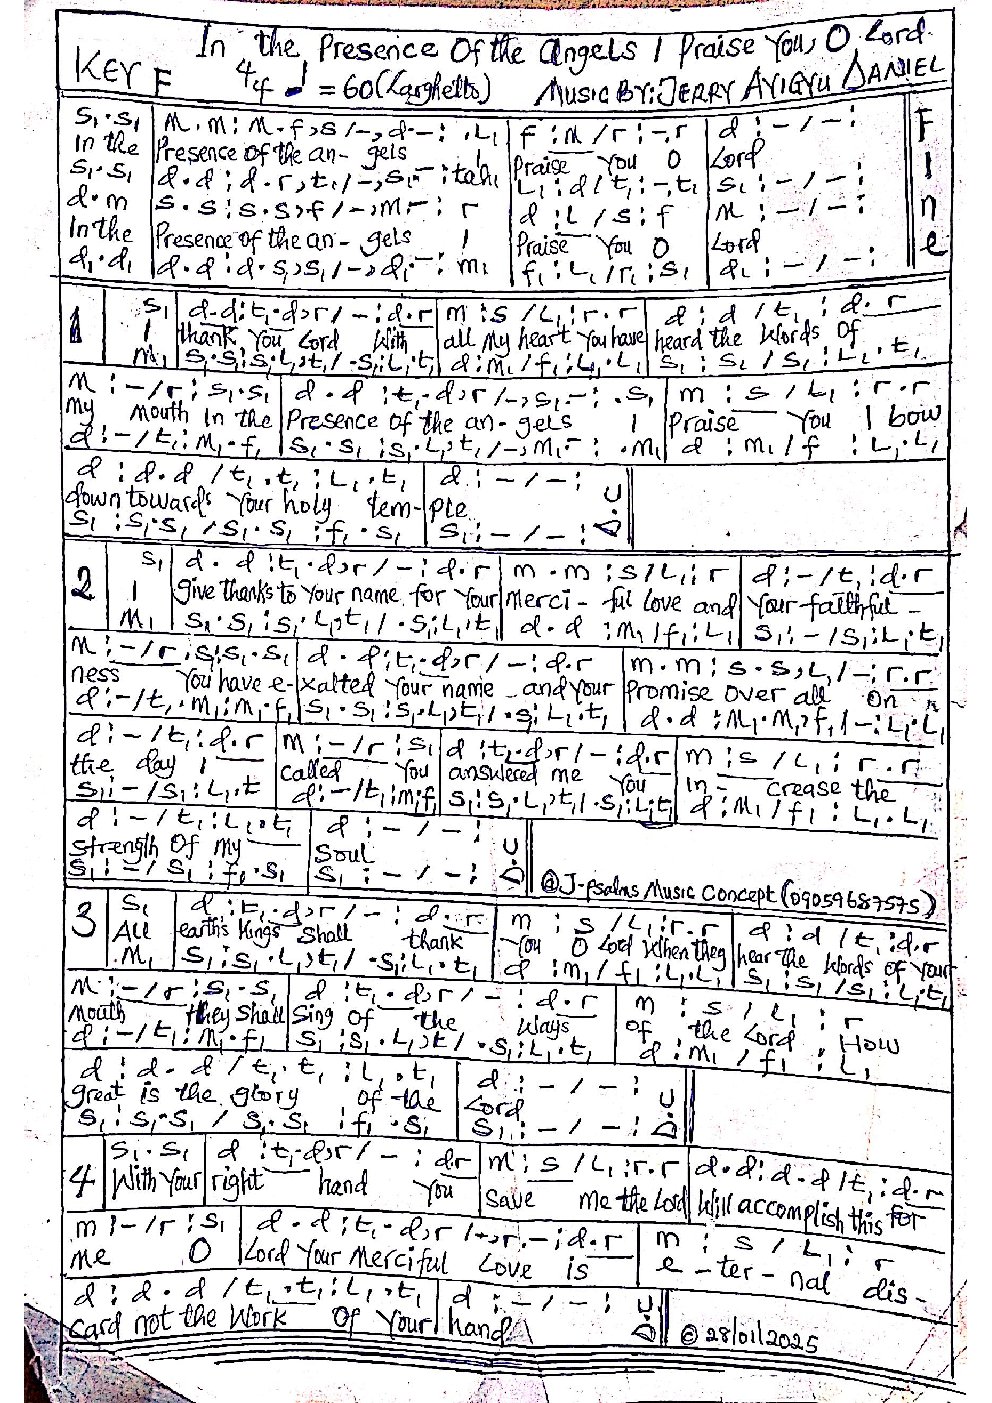 In the Presence Of the angels I Praise You, O Lord.
KEY F 4/4 ♩ = 60 (Larghetto) MUSIC BY: JERRY AYIGYU DANIEL
s₁.s₁ m.m:m.f,s/-,d-: .L₁ f:m/r:-.r d:-/-: Fine
In the Presence of the an- gels I Praise You O Lord
s₁.s₁ d.d:d.r,t₁/-,s₁-:ta₁L₁ L₁:d/t₁:-.t₁ s₁:-/-:
d.m s.s:s.s,f/-,m r: r d:L/s:f m:-/-:
In the Presence of the an- gels I Praise You O Lord
d₁.d₁ d.d:d.s₁,s₁/-,d₁-:m₁ f₁:L₁/r₁:s₁ d₁:-/-:
1 s₁ d-d:t₁.d,r/-:d.r m:s/L₁:r.r d:d/t₁:d.r
I thank You Lord With all My heart You have heard the Words Of
m₁ s₁.s₁:s₁.L₁,t₁/.s₁:L₁.t₁ d:m₁/f₁:L₁.L₁ s₁:s₁/s₁:L₁.t₁
m:-/r:s₁.s₁ d.d:t₁.d,r/-,s₁-:.s₁ m:s/L₁:r.r
my mouth In the Presence Of the an- gels I Praise You I bow
d:-/t₁:m₁.f₁ s₁.s₁:s₁.L₁,t₁/-,m₁r:.m₁ d:m₁/f:L₁.L₁
d:d.d/t₁.t₁:L₁.t₁ d:-/-: D.C
down towards Your holy tem- ple
s₁:s₁.s₁/s₁.s₁:f₁.s₁ s₁:-/-:
2 s₁ d.d:t₁.d,r/-:d.r m.m:s/L₁:r d:-/t₁:d.r
I give thanks to Your name for Your Merci- ful Love and Your faithful-
m₁ s₁.s₁:s₁.L₁,t₁/.s₁:L₁.t₁ d.d:m₁/f₁:L₁ s₁:-/s₁:L₁.t₁
m:-/r:s₁:s₁.s₁ d.d:t₁.d,r/-:d.r m.m:s.s,L₁/-:r.r
ness You have e-xalted Your name and Your Promise over all On
d:-/t₁.m₁:m₁.f₁ s₁.s₁:s₁.L₁,t₁/.s₁:L₁.t₁ d.d:m₁.m₁,f₁/-:L₁.L₁
d:-/t₁:d.r m:-/r:s₁ d:t₁.d,r/-:d.r m:s/L₁:r.r
the day I called You answered me You In- crease the
s₁:-/s₁:L₁.t d:-/t₁:m₁f₁ s₁:s₁.L₁,t₁/.s₁:L₁t₁ d:m₁/f₁:L₁.L₁
d:-/t₁:L₁.t₁ d:-/-: D.C
Strength Of My Soul
s₁:-/s₁:f₁.s₁ s₁:-/-: @J-psalms Music Concept (09059687575)
3 s₁ d:t₁.d,r/-:d.r m:s/L₁:r.r d:d/t₁:d.r
All earth's kings shall thank You O Lord When they hear the Words of Your
m₁ s₁:s₁.L₁,t₁/.s₁:L₁.t₁ d:m₁/f₁:L₁.L₁ s₁:s₁/s₁:L₁.t₁
m:-/r:s₁.s₁ d:t₁.d,r/-:d.r m:s/L₁:r
mouth they shall Sing of the Ways of the Lord How
d:-/t₁:m₁.f₁ s₁:s₁.L₁,t/.s₁:L₁.t₁ d:m₁/f₁:L₁
d:d.d/t₁.t₁:L₁.t₁ d:-/-: D.C
great is the glory of the Lord
s₁:s₁.s₁/s₁.s₁:f₁.s₁ s₁:-/-:
4 s₁.s₁ d:t₁.d,r/-:d.r m:s/L₁:r.r d.d:d.d/t₁:d.r
With Your right hand You save me the Lord Will accomplish this for
m:-/r:s₁ d.d:t₁.d,r/-,r.-:d.r m:s/L₁:r
me O Lord Your Merciful Love is e-ter-nal dis-
d:d.d/t₁.t₁:L₁.t₁ d:-/-: D.C
card not the Work Of Your hand © 28/01/2025